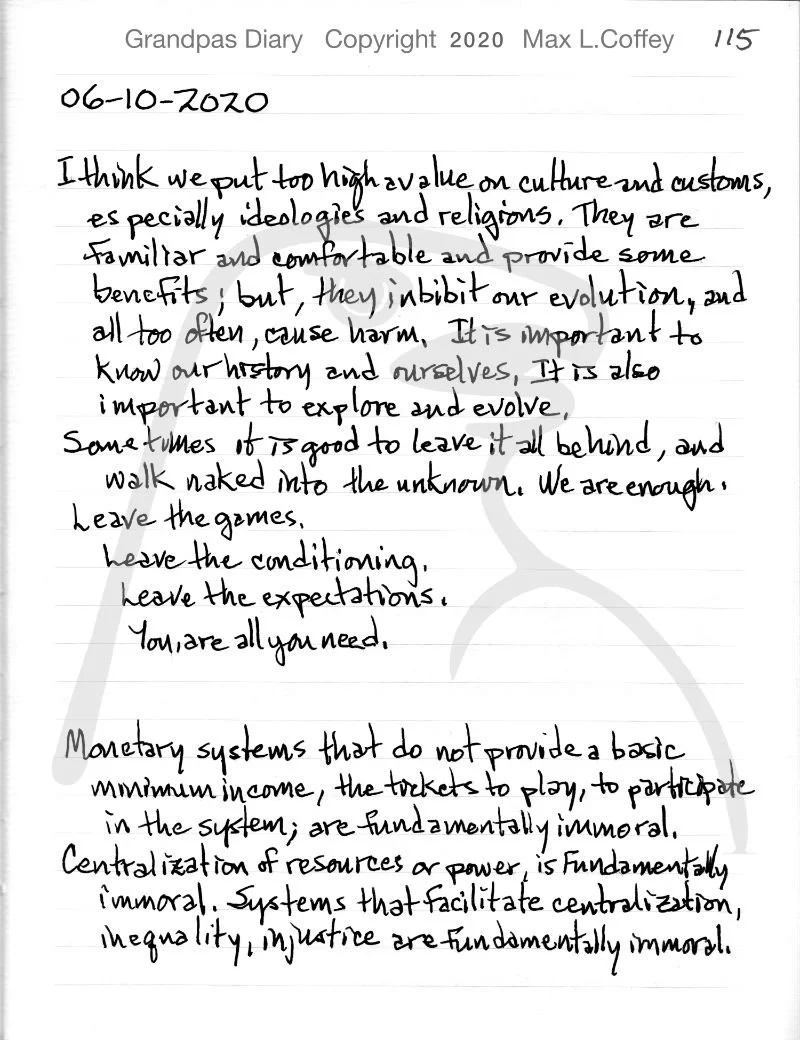 Grandpas Diary Copyright 2020 Max L.Coffey 115
06-10-2020
I think we put too high a value on culture and customs,
especially ideologies and religions. They are
familiar and comfortable and provide some
benefits; but, they inbibit our evolution, and
all too often, cause harm. It is important to
know our history and ourselves. It is also
important to explore and evolve.
Sometimes it is good to leave it all behind, and
walk naked into the unknown. We are enough.
Leave the games.
Leave the conditioning.
Leave the expectations.
You, are all you need.
Monetary systems that do not provide a basic
minimum income, the tickets to play, to participate
in the system; are fundamentally immoral.
Centralization of resources or power, is Fundamentally
immoral. Systems that facilitate centralization,
inequality, injustice are fundamentally immoral.